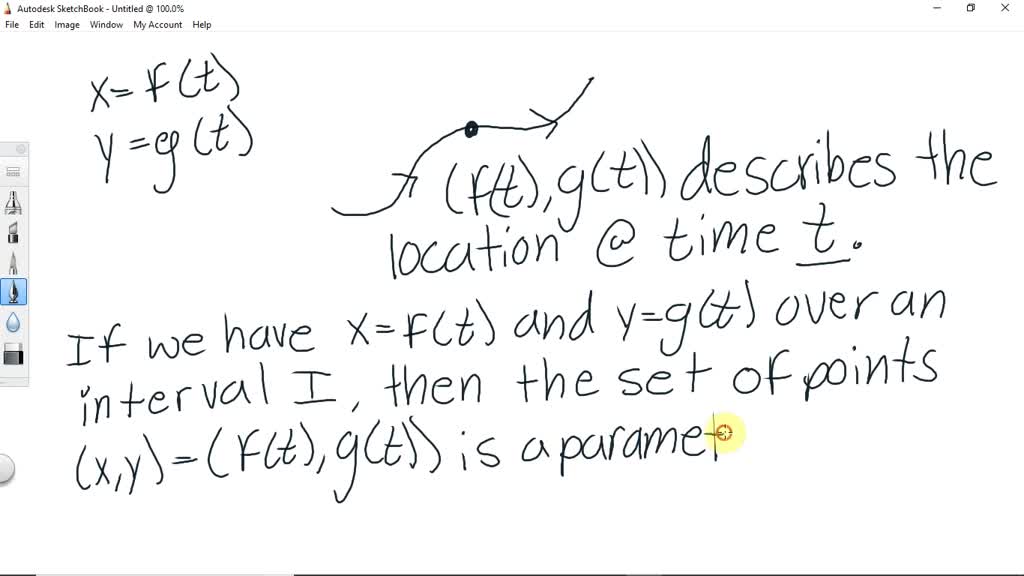 Autodesk SketchBook - Untitled @ 100.0%
File Edit Image Window My Account Help
x=f(t)
y=g(t)
(f(t),g(t)) describes the
location @ time t.
If we have x=f(t) and y=g(t) over an
interval I, then the set of points
(x,y)=(f(t),g(t)) is a paramet